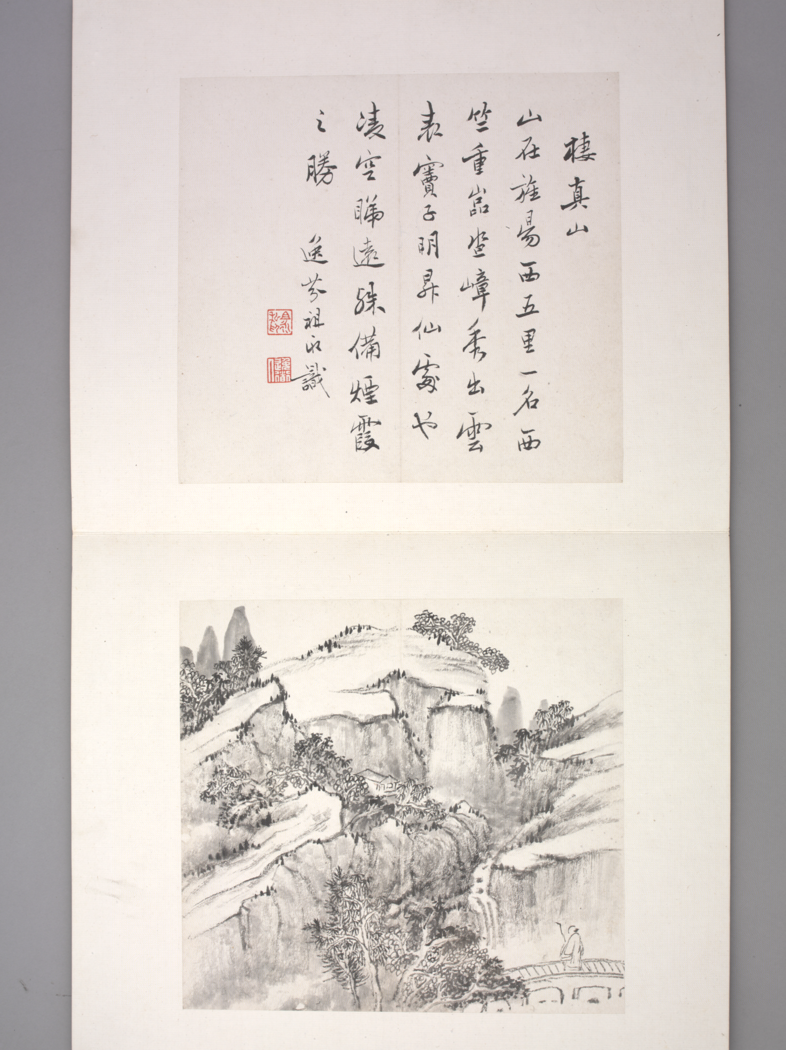 棲真山
山在旌昜西五里一名西
竺重嵓坐嶂秀出雲
表竇子明昇仙處也
凌空睇遠殊備煙霞
之勝
逸芬祖永識